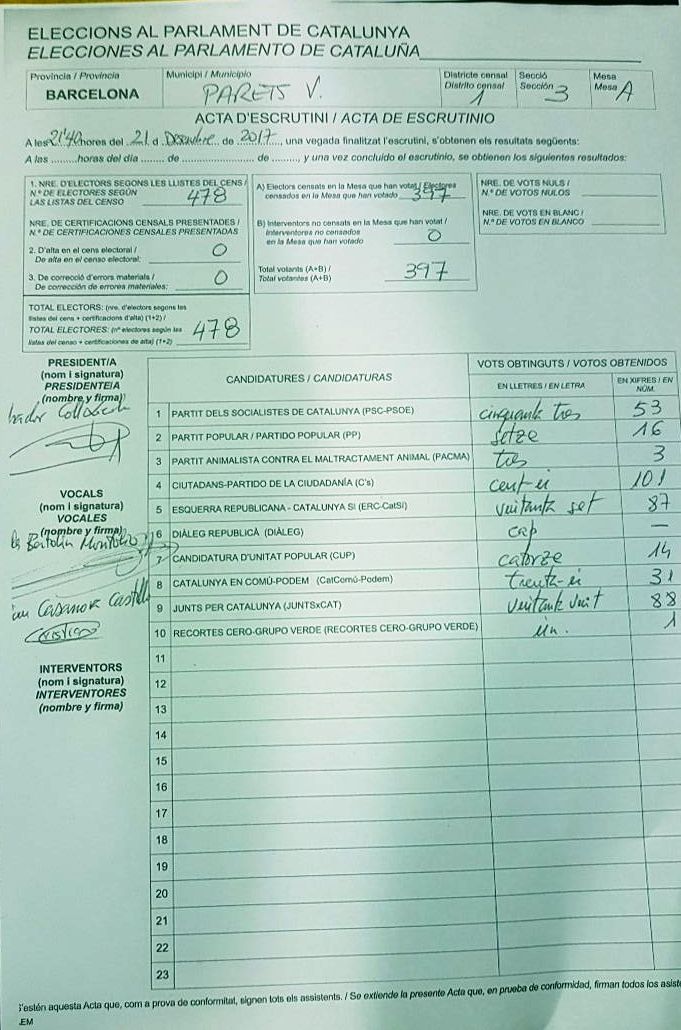 ELECCIONS AL PARLAMENT DE CATALUNYA
ELECCIONES AL PARLAMENTO DE CATALUÑA
Província / Provincia
BARCELONA
Municipi / Municipio
PARETS V.
Districte censal
Distrito censal
1
Secció
Sección 3
Mesa
Mesa A
ACTA D'ESCRUTINI / ACTA DE ESCRUTINIO
A les 21'40 hores del 21 d Desembre de 2017, una vegada finalitzat l'escrutini, s'obtenen els resultats següents:
A las .........horas del día ....... de .................... de ........, y una vez concluido el escrutinio, se obtienen los siguientes resultados:
1. NRE. D'ELECTORS SEGONS LES LLISTES DEL CENS /
N.º DE ELECTORES SEGÚN
LAS LISTAS DEL CENSO 478
NRE. DE CERTIFICACIONS CENSALS PRESENTADES /
N.º DE CERTIFICACIONES CENSALES PRESENTADAS
2. D'alta en el cens electoral /
De alta en el censo electoral: 0
3. De correcció d'errors materials /
De corrección de errores materiales: 0
TOTAL ELECTORS: (nre. d'electors segons les
llistes del cens + certificacions d'alta) (1+2) /
TOTAL ELECTORES: (nº electores según las
listas del censo + certificaciones de alta) (1+2) 478
A) Electors censats en la Mesa que han votat / Electores
censados en la Mesa que han votado 397
B) Interventors no censats en la Mesa que han votat /
Interventores no censados
en la Mesa que han votado 0
Total votants (A+B) /
Total votantes (A+B) 397
NRE. DE VOTS NULS /
N.º DE VOTOS NULOS
NRE. DE VOTS EN BLANC /
N.º DE VOTOS EN BLANCO
PRESIDENT/A
(nom i signatura)
PRESIDENTE/A
(nombre y firma)
VOCALS
(nom i signatura)
VOCALES
(nombre y firma)
Casanova Castell
INTERVENTORS
(nom i signatura)
INTERVENTORES
(nombre y firma)
CANDIDATURES / CANDIDATURAS
VOTS OBTINGUTS / VOTOS OBTENIDOS
EN LLETRES / EN LETRA
EN XIFRES / EN
NÚM.
1 PARTIT DELS SOCIALISTES DE CATALUNYA (PSC-PSOE) cinquanta tres 53
2 PARTIT POPULAR / PARTIDO POPULAR (PP) setze 16
3 PARTIT ANIMALISTA CONTRA EL MALTRACTAMENT ANIMAL (PACMA) tres 3
4 CIUTADANS-PARTIDO DE LA CIUDADANÍA (C's) cent-u 101
5 ESQUERRA REPUBLICANA - CATALUNYA SÍ (ERC-CatSí) vuitanta set 87
6 DIÀLEG REPUBLICÀ (DIÀLEG) cap —
7 CANDIDATURA D'UNITAT POPULAR (CUP) catorze 14
8 CATALUNYA EN COMÚ-PODEM (CatComú-Podem) trenta-u 31
9 JUNTS PER CATALUNYA (JUNTSxCAT) vuitanta vuit 88
10 RECORTES CERO-GRUPO VERDE (RECORTES CERO-GRUPO VERDE) un. 1
11
12
13
14
15
16
17
18
19
20
21
22
23
s'estén aquesta Acta que, com a prova de conformitat, signen tots els assistents. / Se extiende la presente Acta que, en prueba de conformidad, firman todos los asist
.EM